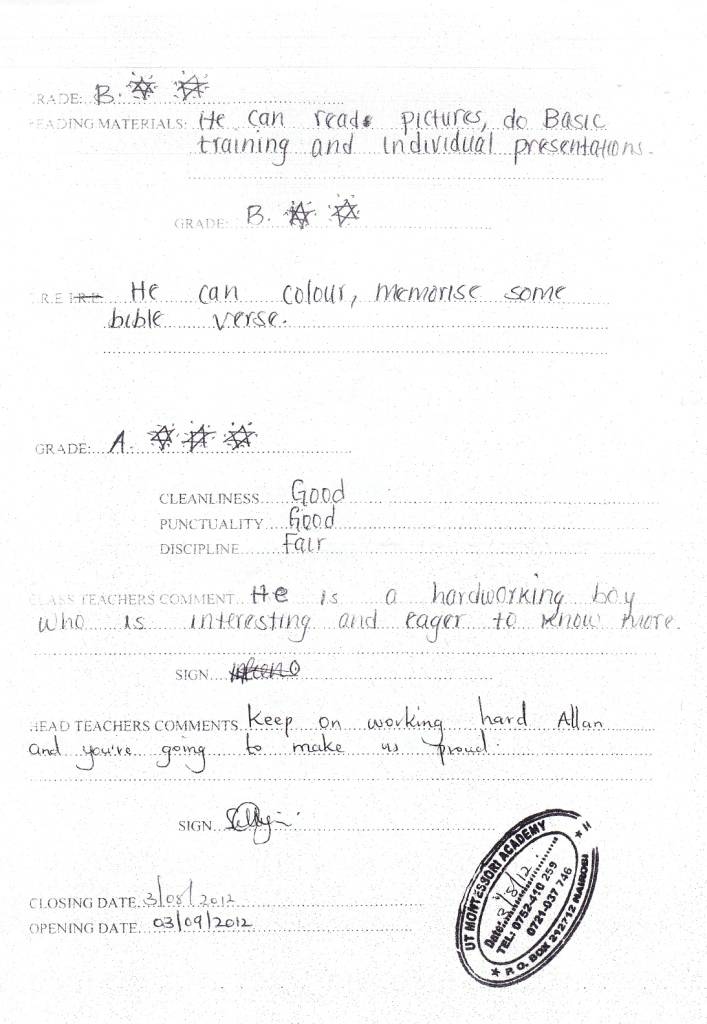 RADE: B.
EADING MATERIALS: He can read pictures, do Basic
training and individual presentations.
GRADE: B.
R.E I.R.E He can colour, memorise some
bible verse.
GRADE: A.
CLEANLINESS Good
PUNCTUALITY Good
DISCIPLINE Fair
CLASS TEACHERS COMMENT He is a hardworking boy
who is interesting and eager to know more.
SIGN
HEAD TEACHERS COMMENTS Keep on working hard Allan
and you're going to make us proud.
SIGN
CLOSING DATE 3/08/2012
OPENING DATE 03/09/2012
UT MONTESSORI ACADEMY
Date: 3/8/12
TEL: 0752-410 259
0721-037 746
P.O. BOX 212712 NAIROBI